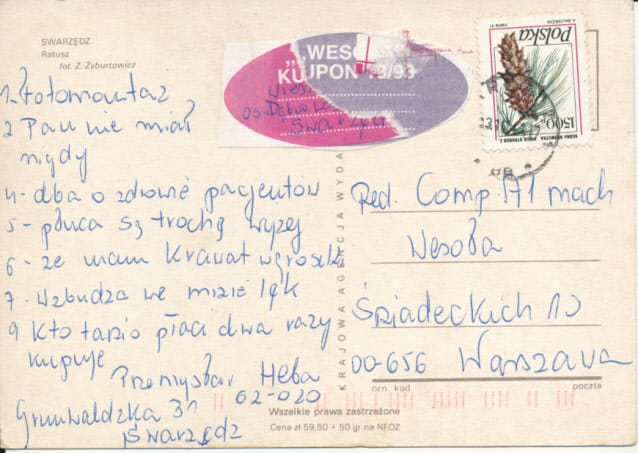 SWARZĘDZ
Ratusz
fot. Z. Żyburtowicz
1. Fotomontaż
2 Pan nie miał
nigdy
4 - dba o zdrowie pacjentów
5 - płuca są trochę wyżej
6 - że mam krawat w groszki
7 - Wzbudza we mnie lęk
9 Kto tanio płaci dwa razy
kupuje
Przemysław Heba
62-020
Grunwaldzka 31
Swarzędz
„WESO
KUPON 3/93
KRAJOWA AGENCJA WYDA
Polska
1500
Red. Comp. A1 mach
Wesoła
Śniadeckich 10
00-656 Warszawa
ozn. kod
poczta
Wszelkie prawa zastrzeżone
Cena zł 59,50 + 50 gr na NFOZ